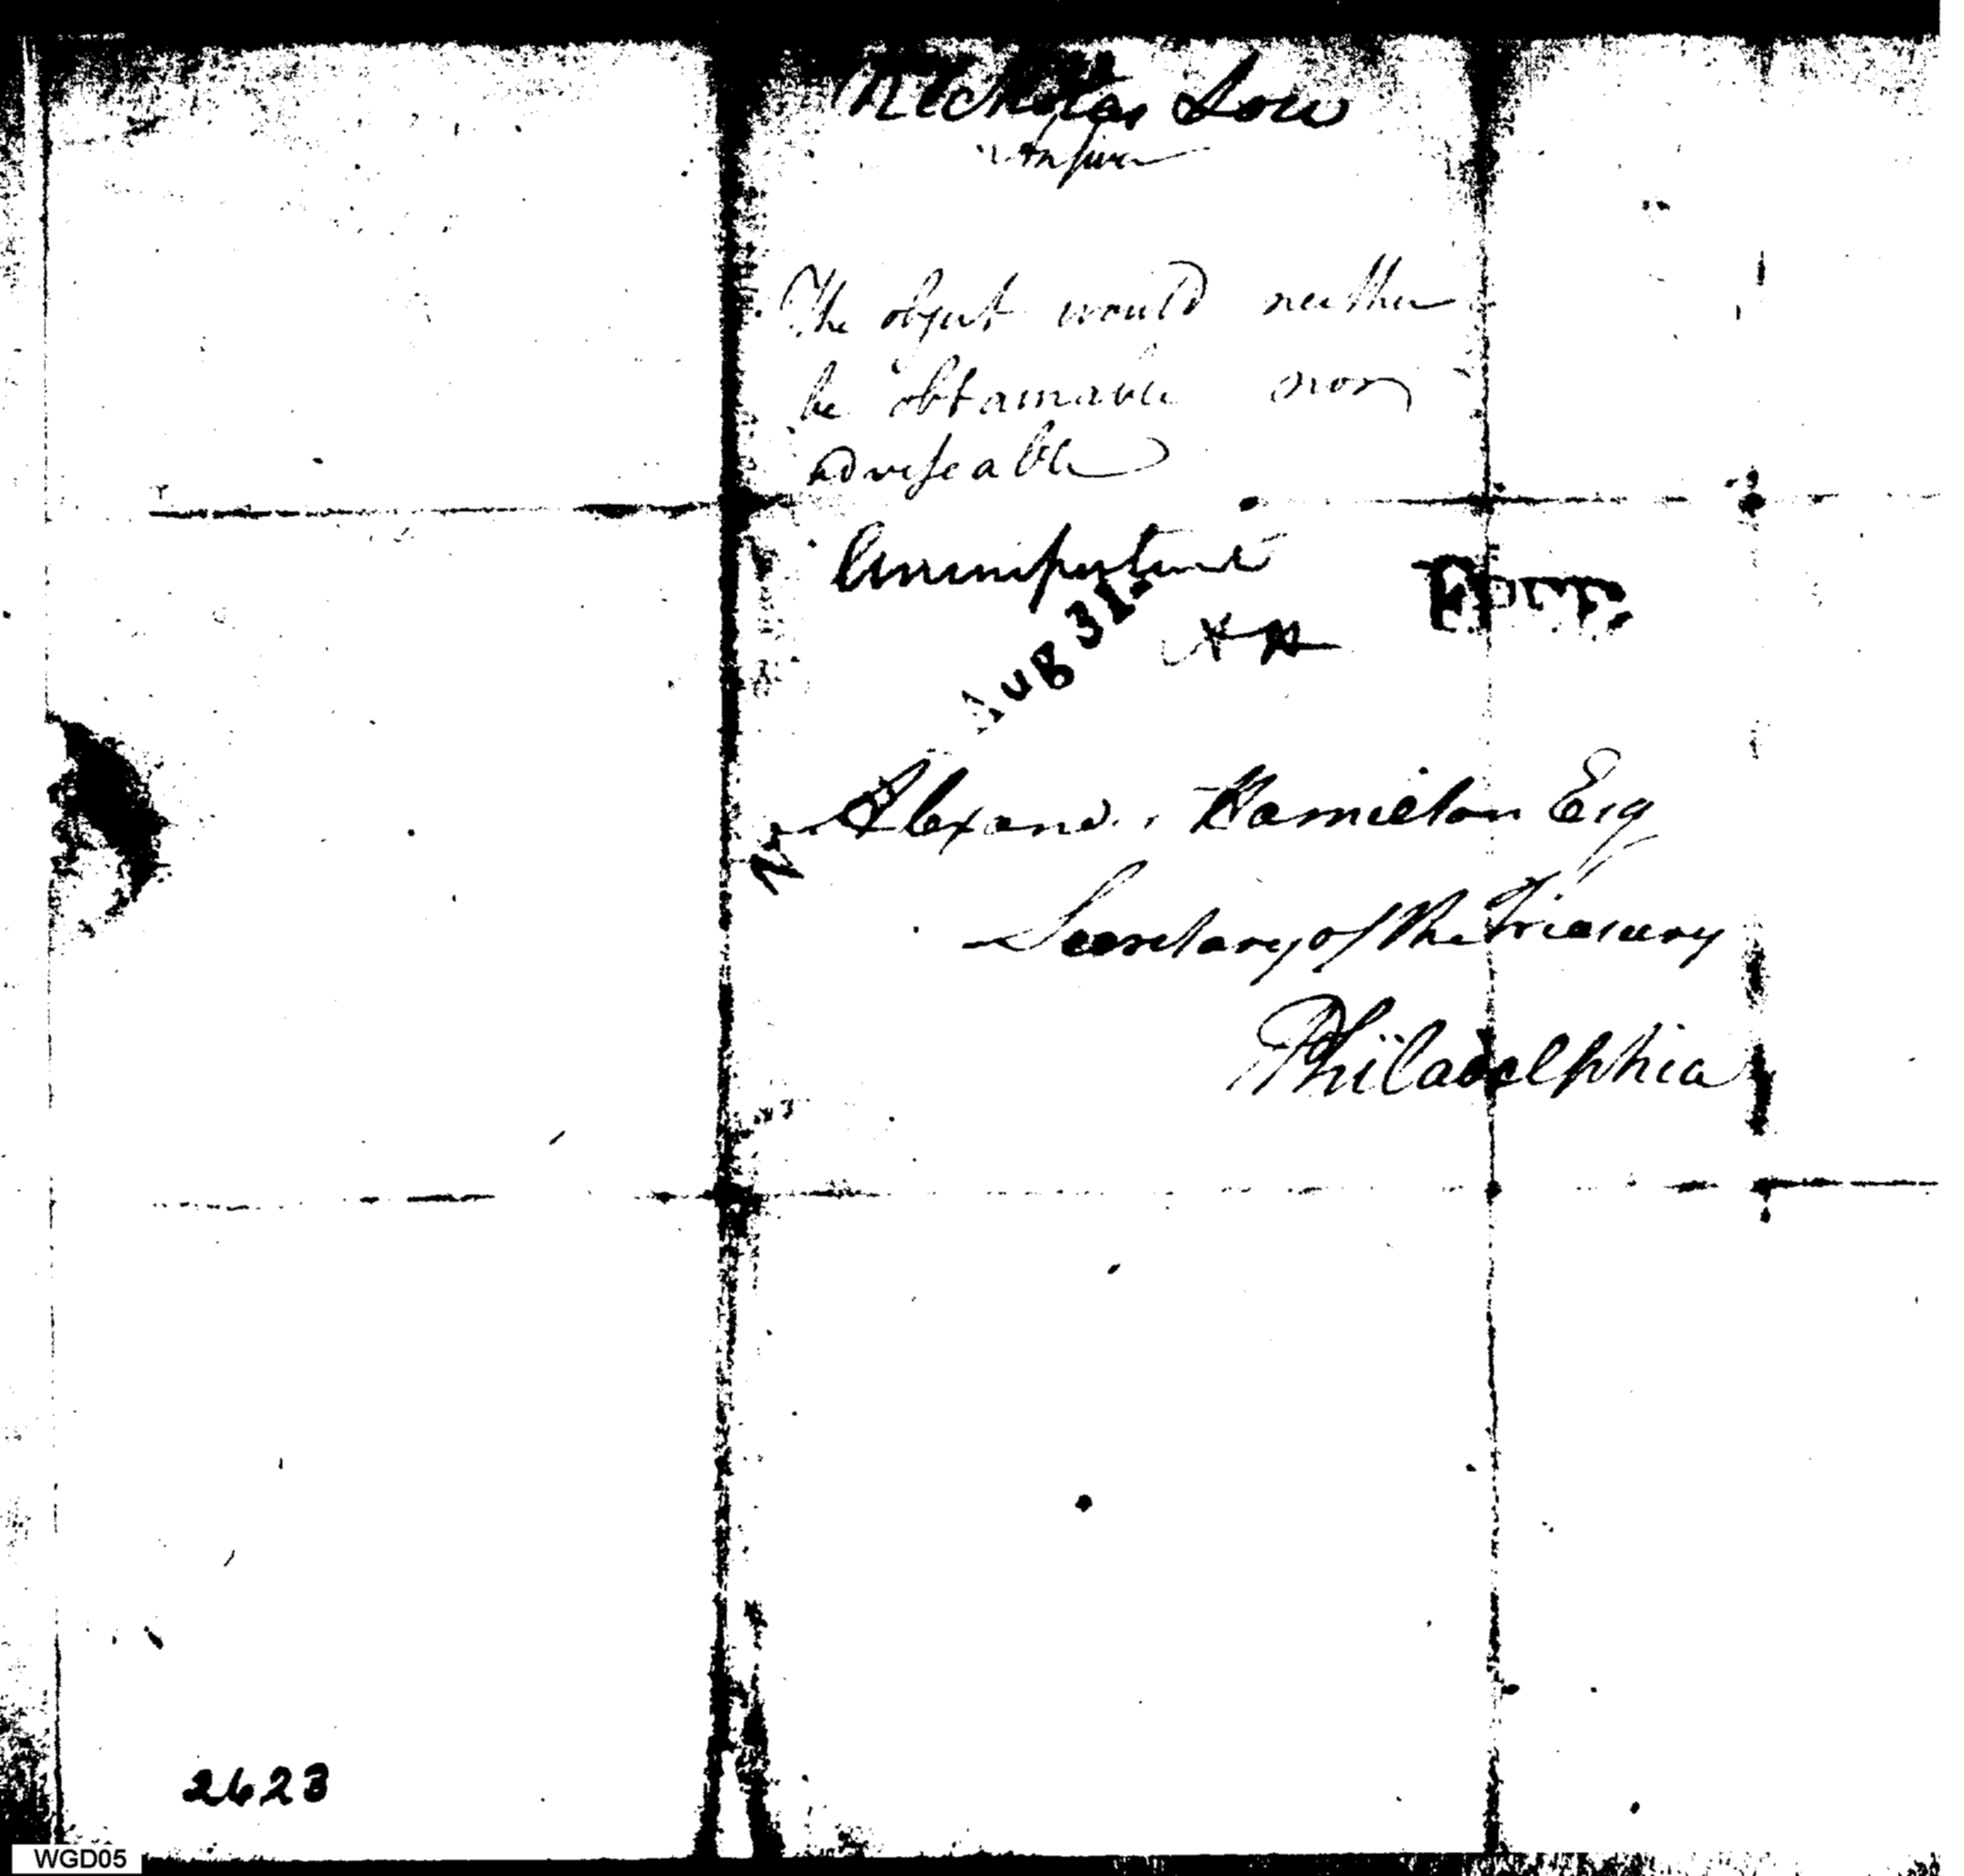 Nicholas Low
Answer
The object would neither
be obtainable nor
adviseable
Unimportant
AUG 31
AH
FREE
Alexander Hamilton Esq
Secretary of the Treasury
Philadelphia
2623
WGD05